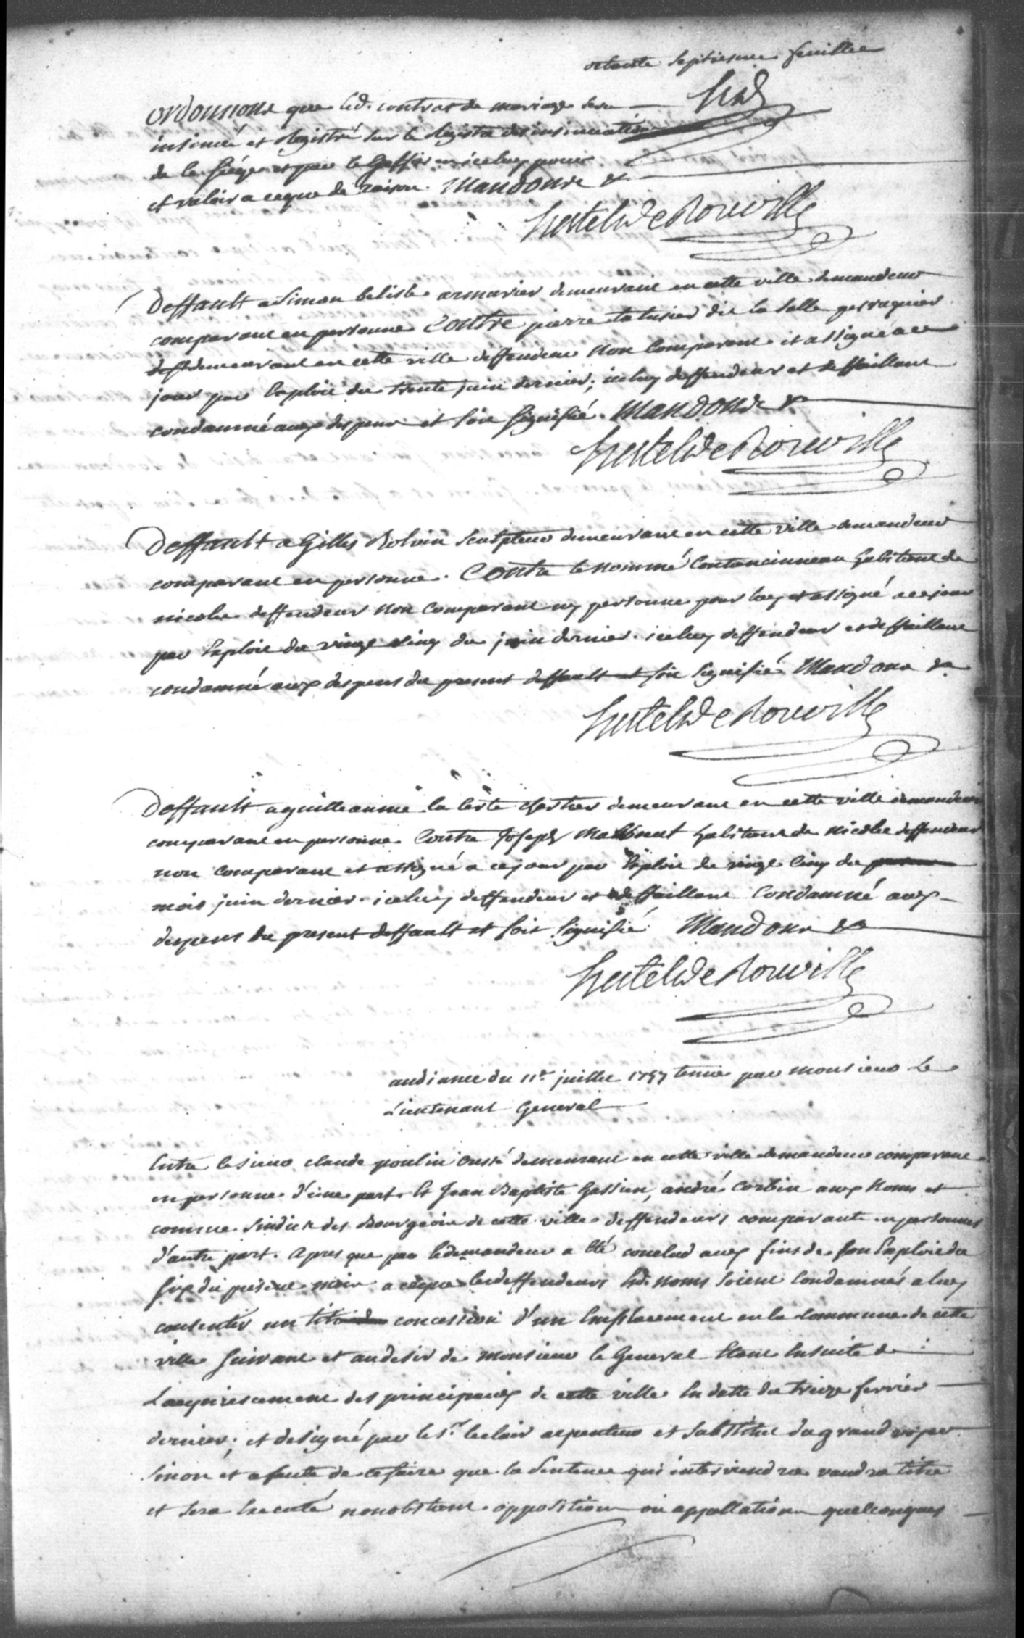 octante septiesme feuillet
ordonnons que led. contrat de mariage sera
insinué et Registré sur le Registre des insinuations
de ce siége par le Greffier pour
et valoir a ce que de raison. Mandons &
HertelDeRouville
Deffault a Simon belisle armurier demeurant en cette ville demandeur
comparant en personne Contre pierre dit la Salle perruquier
demeurant en cette ville deffendeur Non Comparant et assigné a ce
jour par Exploit du trente juin dernier; iceluy deffendeur et deffaillant
condamné aux depens et soit signifié. Mandons &
HertelDeRouville
Deffault a Gilles Bolvin sculpteur demeurant en cette ville demandeur
comparant en personne. Contre le nommé habitant de
nicolet deffendeur non comparant ny personne pour luy et assigné a ce jour
par Exploit du vingt cinq du juin dernier. iceluy deffendeur et deffaillant
condamné aux depens du present deffault et soit signifié Mandons &
HertelDeRouville
Deffault a guilleaume la demeurant en cette ville demandeur
comparant en personne Contre Joseph habitant de Nicolet deffendeur
non comparant et assigné a ce jour par Exploit du vingt Cinq du
mois juin dernier. iceluy deffendeur et deffaillant Condamné aux
depens du present deffault et soit signifié Mandons &
HertelDeRouville
audiance du 11e juillet 1757 tenue par monsieur Le
Lieutenant General
Entre le sieur claude poulin demeurant en cette ville demandeur comparant
en personne d'une part. Et Jean Baptiste Gassien, andré Corbin aux Noms et
comme Sindics des Bourgeois de cette ville deffendeurs comparant en personnes
d'autre part. Apres que par le demandeur a Eté conclud aux fins de son Exploit du
six du present mois a ce que les deffendeurs esd. noms soient Condamnés a luy
consentir un titre concession d'un Emplacement en la Commune de cette
ville suivant et au desir de Monsieur le General Etant Ensuite de
L'acquiescement des principaux de cette ville En datte du treize fevrier
dernier; et designé par le Sr. leclair arpenteur et Substitut du grand voyer
Sinon et a faute de ce faire que la Sentence qui interviendra vaudra titre
et sera Executé nonobstant opposition ou appellation quelconques